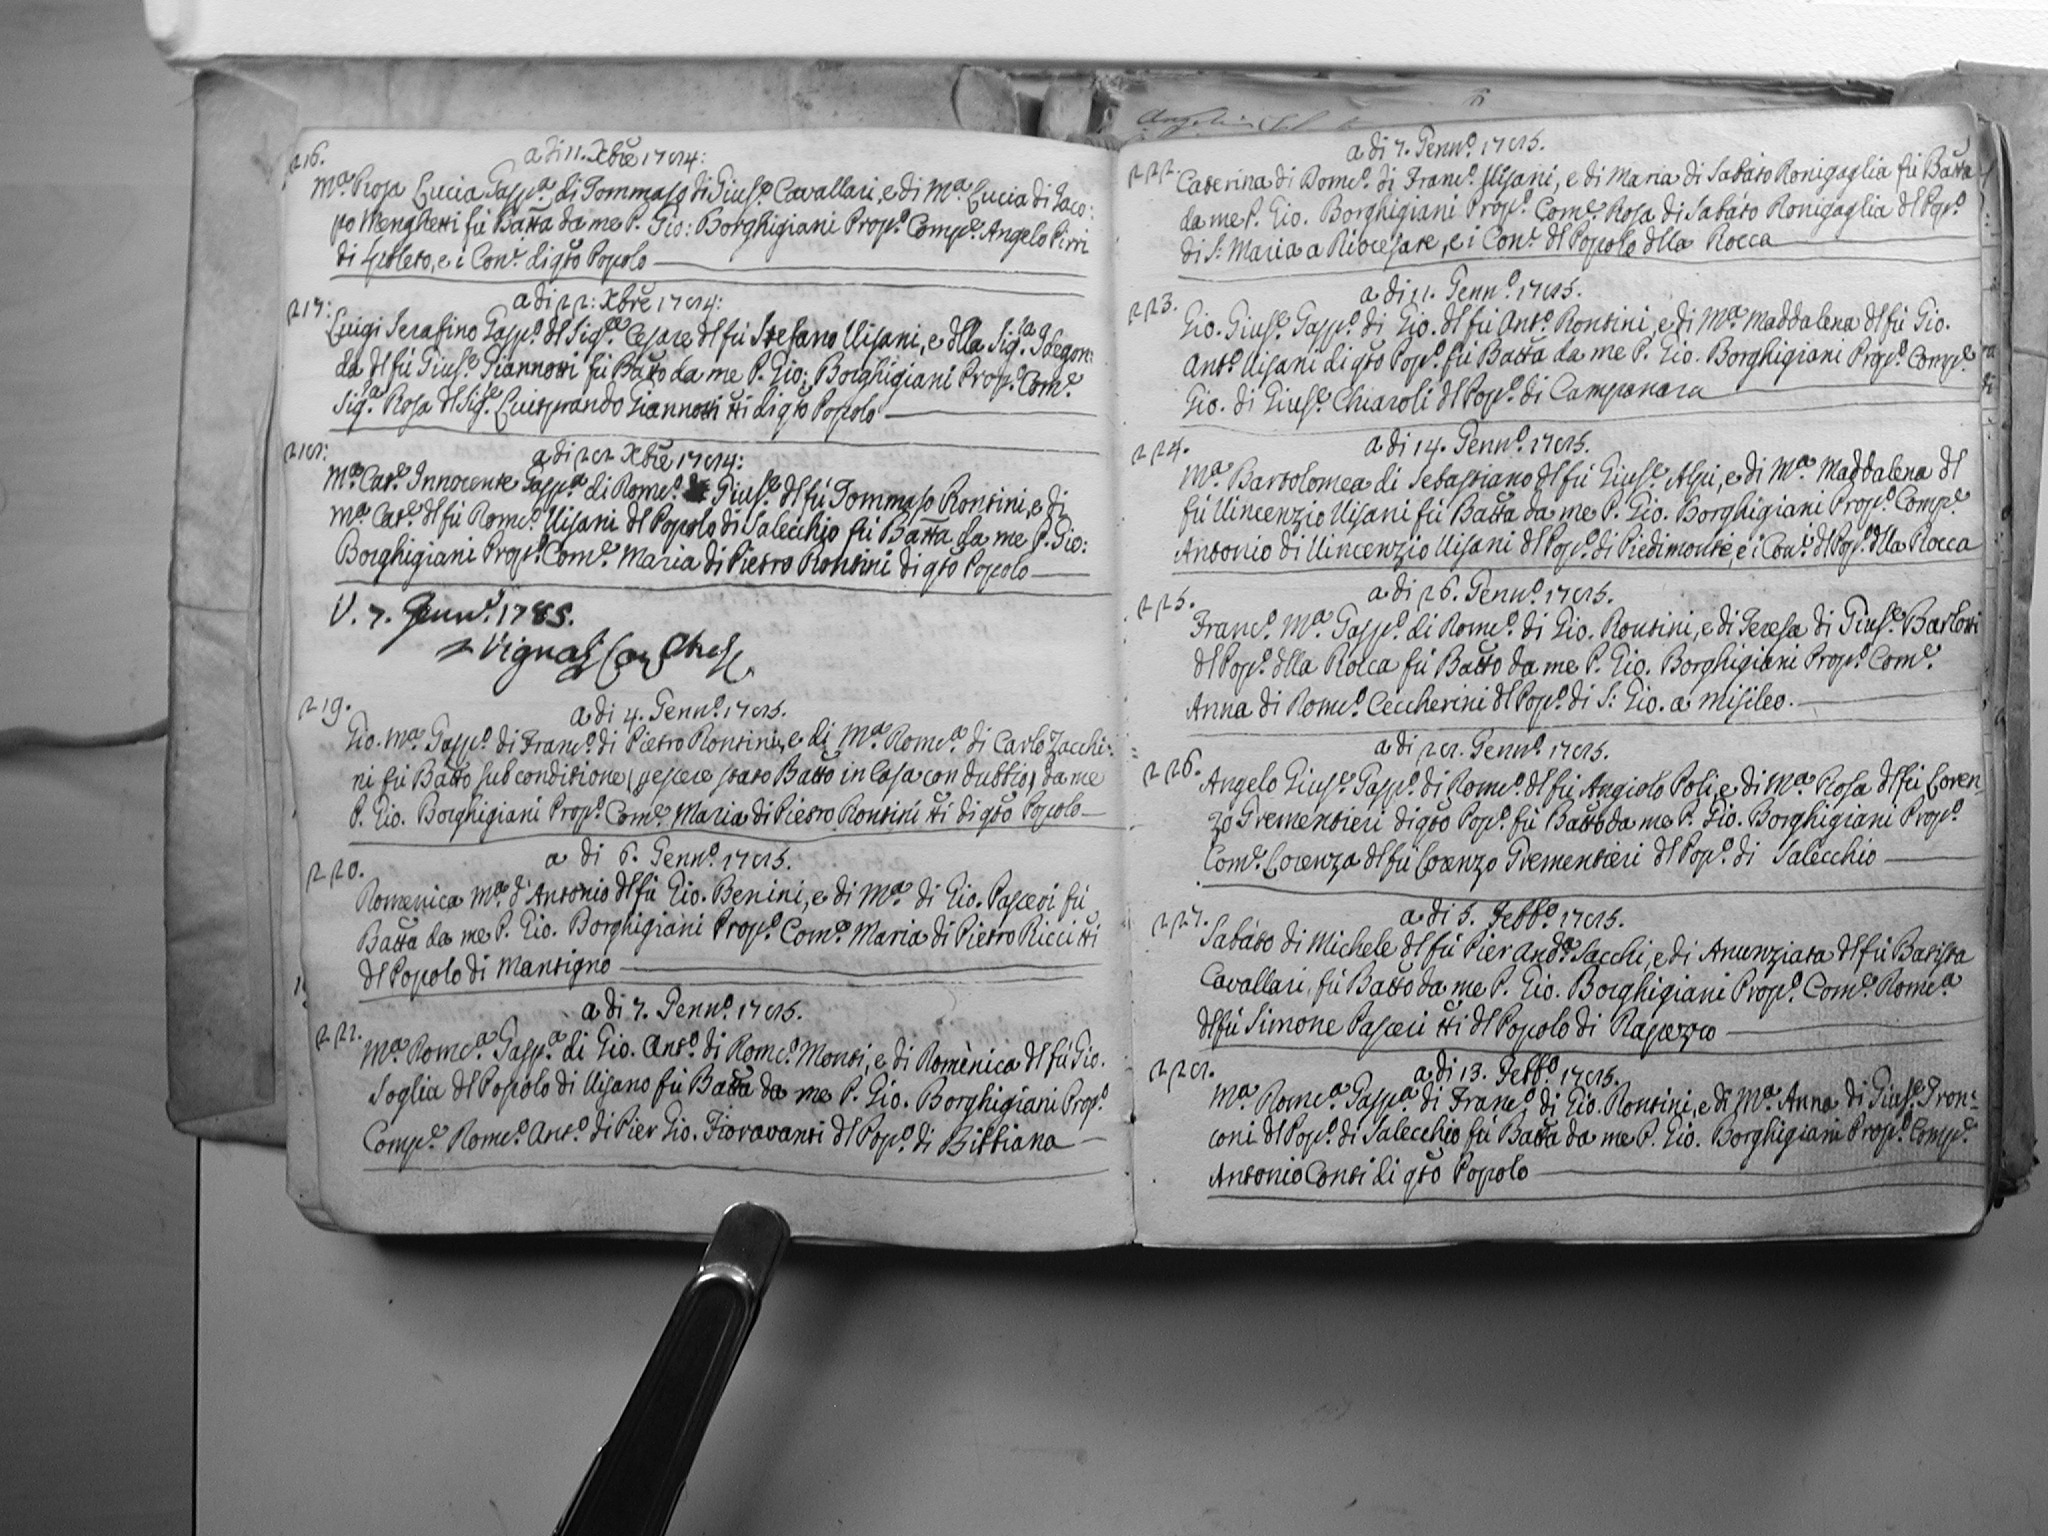 216.
a di 11. Xbre 1784:
Mª Rosa Lucia Gaspª di Tommaso di Giusᵉ Cavallari, e di Mª Lucia di Jaco:
po Menghetti fù Batta da me P. Gio: Borghigiani Propº Compᵉ Angelo Pirri
di Spoleto, e i Conⁱ di qsto Popolo
217:
a di 22: Xbre 1784:
Luigi Serafino Gaspº dl Sigᵉ Cesare dl fù Stefano Visani, e dlla Sigʳª Ildegon:
da dl fù Giusᵉ Giannotti fù Batto da me P. Gio: Borghigiani Propº Comᵉ
Sigʳª Rosa dl Sigᵉ Luitprando Giannotti tti di qsto Popolo
218:
a di 28 Xbre 1784:
Mª Catª Innocente Gaspª di Domcº Giusᵉ dl fù Tommaso Rontini, e di
Mª Catª dl fù Domcº Visani dl Popolo di Salecchio fù Batta da me P. Gio:
Borghigiani Propº Comᵉ Maria di Pietro Rontini di qsto Popolo
V. 7. Gennº 1785.
219.
a di 4. Gennº 1785.
Gio. Mª Gaspº di Francº di Pietro Rontini, e di Mª Domcª di Carlo Zacchi:
ni fù Batto sub conditione (p essere stato Batto in Casa con dubbio) da me
P. Gio. Borghigiani Propº Comᵉ Maria di Pietro Rontini tti di qsto Popolo
220.
a di 6. Gennº 1785.
Domenica Mª d'Antonio dl fù Gio. Benini, e di Mª di Gio. Pasceri fù
Batta da me P. Gio. Borghigiani Propº Comᵉ Maria di Pietro Ricci tti
dl Popolo di Mantigno
221.
a di 7. Gennº 1785.
Mª Domcª Gaspª di Gio. Antº di Domcº Monti, e di Domènica dl fù Gio.
Soglia dl Popolo di Visano fù Batta da me P. Gio. Borghigiani Propº
Compᵉ Domcº Antº di Pier Gio. Fioravanti dl Popº di Bibbiana
222.
a di 7. Gennº 1785.
Caterina di Domcº di Francº Visani, e di Maria di Sabato Ronigaglia fù Batta
da me P. Gio. Borghigiani Propº Comᵉ Rosa di Sabato Ronigaglia dl Popº
di S. Maria a Riocesare, e i Conⁱ dl Popolo dlla Rocca
223.
a di 11. Gennº 1785.
Gio. Giusᵉ Gaspº di Gio. dl fù Antº Rontini, e di Mª Maddalena dl fù Gio.
Antº Visani di qsto Popº fù Batta da me P. Gio. Borghigiani Propº Compᵉ
Gio. di Giusᵉ Chiaroli dl Popº di Campanara
224.
a di 14. Gennº 1785.
Mª Bartolomea di Sebastiano dl fù Giusᵉ Alpi, e di Mª Maddalena dl
fù Vincenzio Visani fù Batta da me P. Gio. Borghigiani Propº Compᵉ
Antonio di Vincenzio Visani dl Popº di Piedimonte, e i Conⁱ dl Popº dlla Rocca
225.
a di 26. Gennº 1785.
Francº Mª Gaspº di Domcº di Gio. Rontini, e di Teresa di Giusᵉ Barlotti
dl Popº dlla Rocca fù Batto da me P. Gio. Borghigiani Propº Comᵉ
Anna di Domcº Ceccherini dl Popº di S: Gio. a Misileo.
226.
a di 28. Gennº 1785.
Angelo Giusᵉ Gaspº di Domcº dl fù Angiolo Poli, e di Mª Rosa dl fù Loren
zo Trementieri di qsto Popº fù Batto da me P. Gio. Borghigiani Propº
Comᵉ Lorenza dl fù Lorenzo Trementieri dl Popº di Salecchio
227.
a di 5. Febbº 1785.
Sabato di Michele dl fù Pier Andª Sacchi, e di Anunziata dl fù Batista
Cavallari, fù Batto da me P. Gio. Borghigiani Propº Comᵉ Domcª
dl fù Simone Pasceri tti dl Popolo di Rapezzo
228.
a di 13. Febbº 1785.
Mª Domcª Gaspª di Francº di Gio. Rontini, e di Mª Anna di Giusᵉ Tron:
coni dl Popº di Salecchio fù Batta da me P. Gio. Borghigiani Propº Compᵉ
Antonio Conti di qsto Popolo